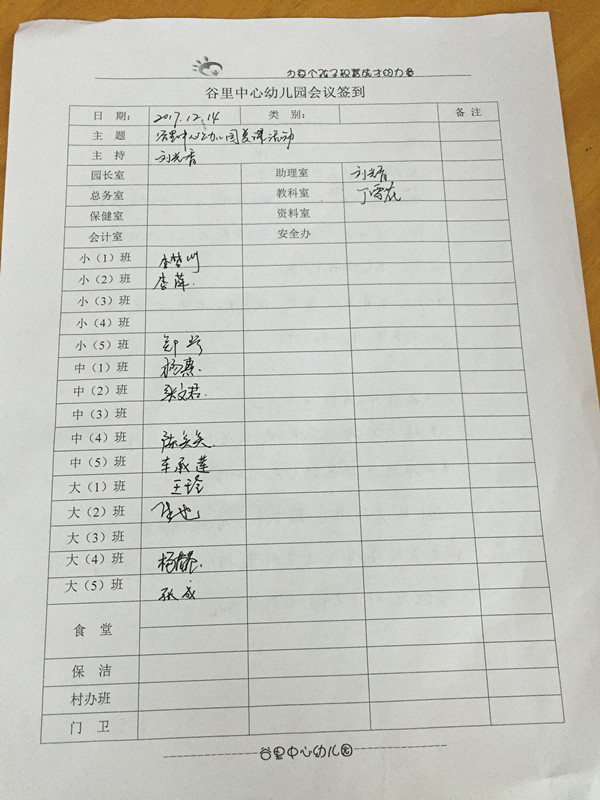 为每个孩子积蓄成才的力量
谷里中心幼儿园会议签到
日 期： 2017.12.14 类 别： 备 注
主 题 谷里中心幼儿园复课活动
主 持 刘光香
园长室 助理室 刘光香
总务室 教科室 丁雪花
保健室 资料室
会计室 安全办
小（1）班
小（2）班 李萍
小（3）班
小（4）班
小（5）班 郑
中（1）班 杨惠
中（2）班 张文君
中（3）班
中（4）班 陈笑笑
中（5）班 车承莲
大（1）班 王玲
大（2）班
大（3）班
大（4）班 杨静
大（5）班 张成
食 堂
保 洁
村办班
门 卫
谷里中心幼儿园